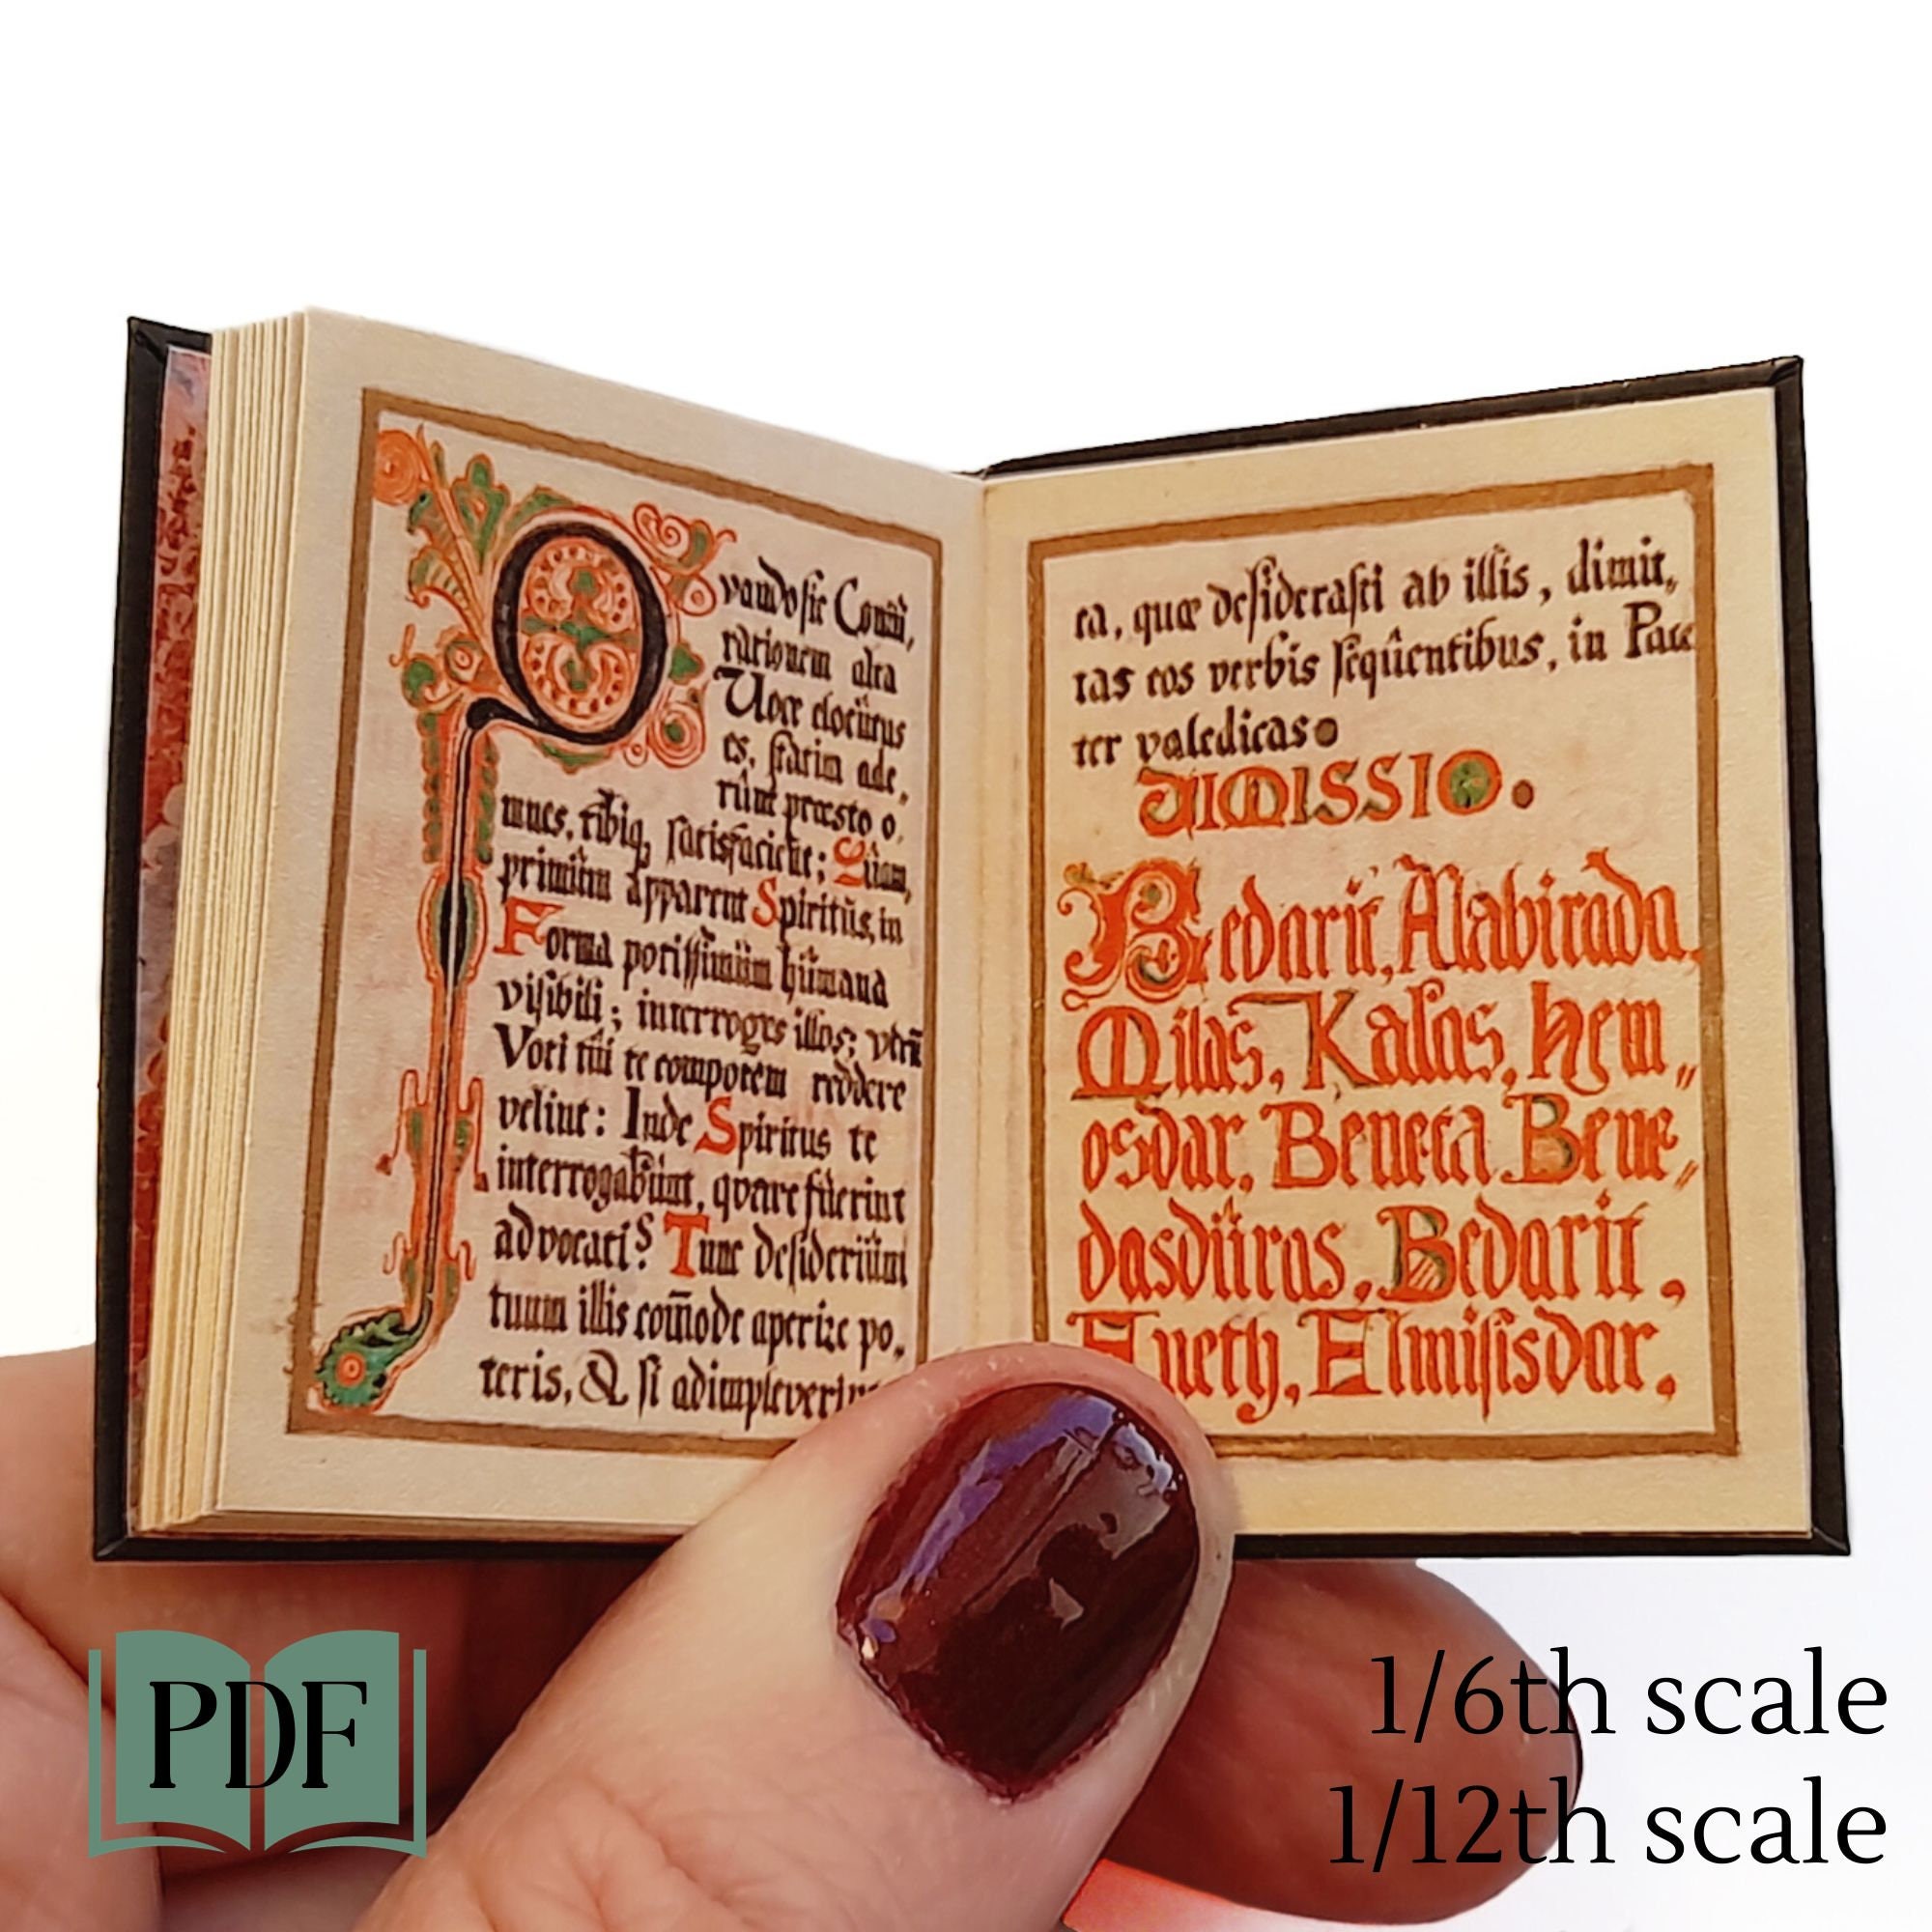 Qvando sic Conıů,
rationem alta
Voce elocůtus
es, statim ade,
růnt præsto o,
mnes, tibiq, satisfacient; Quam,
primům apparent Spiritůs, in
Forma potissimům hůmana
visibili; interroges illos; vtrů
Voti tůi te compotem reddere
velint: Inde Spiritus te
interrogabůnt, qvare fůerint
advocati? Tunc desideriům
tuum illis com̃ode aperire po,,
teris, & si adimpleverint
ea, quæ desiderasti ab illis, dimit,,
tas eos verbis seqůentibus, in Pace
ter valedicas.
DIMISSIO.
Bedarit, Alabirada,
Milas, Kalas, Hem,,
osdar, Beneta, Bene,,
dasdůras, Bedarit,
Elmisisdar,
PDF
1/6th scale
1/12th scale